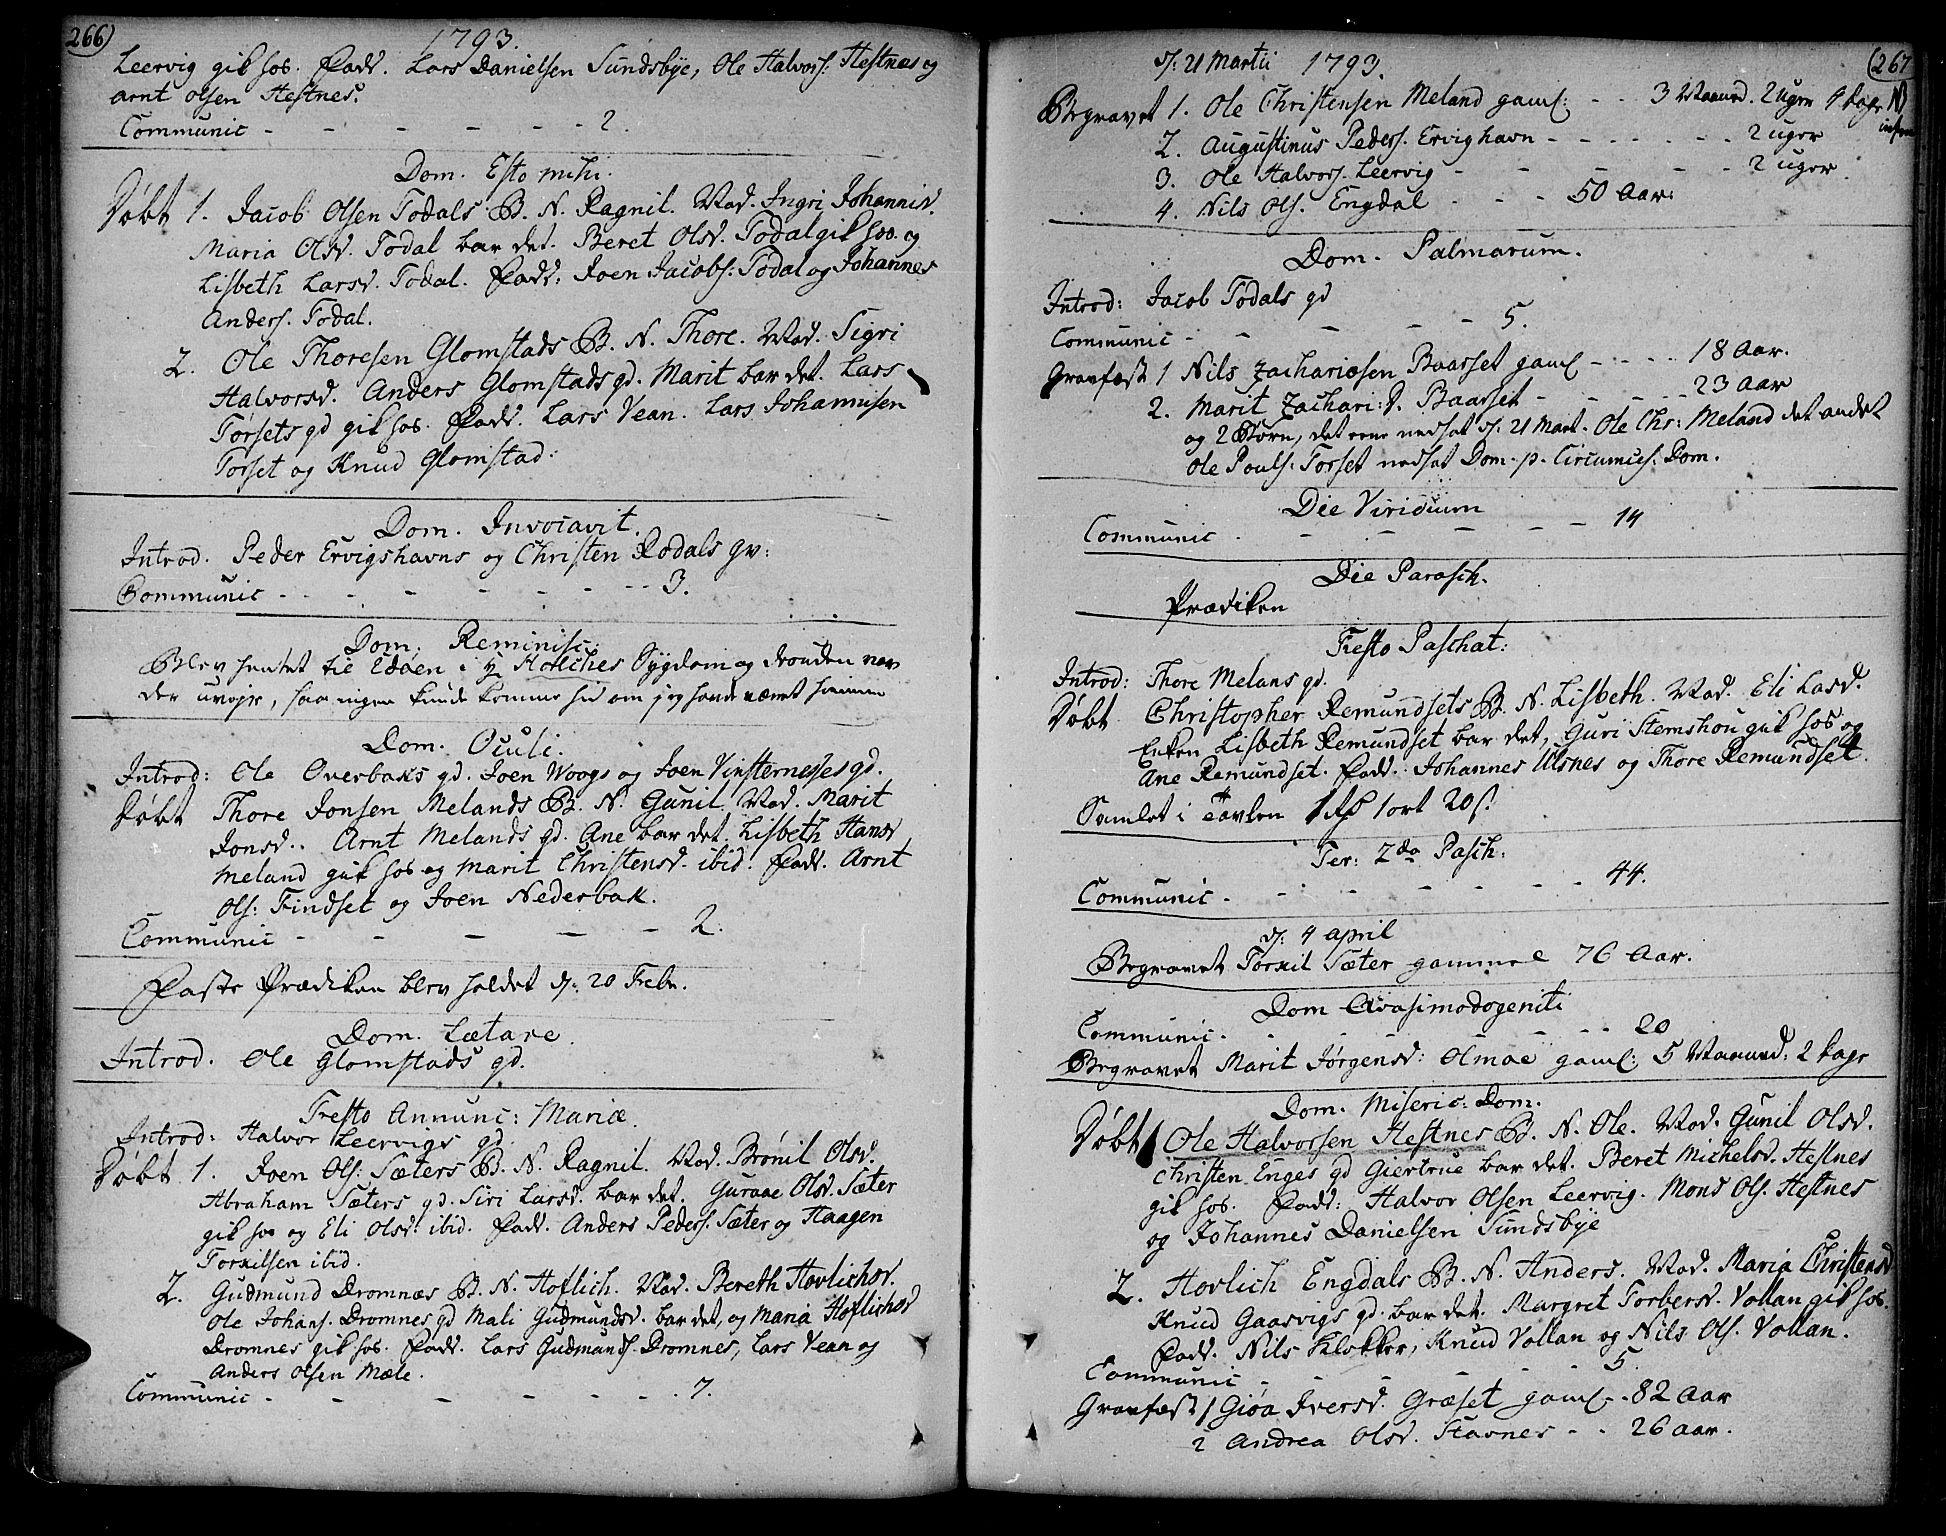 266)
1793.
Leervig gik hos. Fadd. Lars Danielsen Sundsbye, Ole Halvors: Hestnes og
Arnt Olsen Hestnes.
Communic - - - - - - 2.
Dom. Esto mihi.
Døbt 1. Jacob Olsen Todals B. N. Ragnil. Mod. Ingri Johannisd.
Maria Olsd. Todal bar det. Beret Olsd. Todal gik hos. og
Lisbeth Larsd. Todal. Fadd: Joen Jacobs: Todal og Johannes
Anders. Todal.
2. Ole Thoresen Glomstads B. N. Thore. Mod. Sigri
Halvorsd. Anders Glomstads qd. Marit bar det. Lars
Torsets qd gik hos. Fadd. Lars Vean. Lars Johannisen
Torset og Knud Glomstad:
Dom. Invocavit.
Introd. Peder Ervigshavns og Christen Rodals qv:
Communic - - - - - - - 3.
Dom. Reminisc:
Blev hentet til Edøen i Holches Sygdom og desuden var
der uvejr, saa ingen kunde komme hid om jeg havde været hiemme
Dom. Oculi.
Introd: Ole Overbaks qd. Joen Woogs og Joen Vinsternesses qd.
Døbt Thore Jonsen Melands B. N. Gunil. Mod. Marit
Jonsd.. Arnt Melands qd. Ane bar det. Lisbeth Hansd
Meland gik hos og Marit Christensd. ibid. Fadd. Arnt
Ols: Findset og Joen Nederbak.
Communic - - - - - 2.
Faste Prædiken blev holdet d: 20 Febr.
Dom. Lætare.
Introd. Ole Glomstads qd.
Festo Annunc: Mariæ.
Introd: Halvor Leervigs qd.
Døbt 1. Joen Ols: Sæters B. N. Ragnil. Mod. Brønil Olsd.
Abraham Sæters qd. Siri Larsd. bar det. Guraae Olsd. Sæter
gik hos og Eli Olsd. ibid. Fadd. Anders Peders. Sæter og Haagen
Torkilsen ibid.
2. Gudmund Dromnæs B. N. Hoflich. Mod. Bereth Hovlichsd.
Ole Johans. Dromnes qd Mali Gudmundsd. bar det, og Maria Hoflichsd
Dromnes gik hos. Fadd. Lars Gudmunds. Dromnes, Lars Vean og
Anders Olsen Mæle.
Communic - - - - - - 7.
(267
d: 21 Martii 1793.
Begravet 1. Ole Christensen Meland gaml: - - 3 Maaned. 2 uger 4 dage
2. Augustinus Peders. Ervighavn - - - - - - 2 uger
3. Ole Halvors. Leervig - - - - - 2 uger.
4. Nils Ols. Engdal - - - 50 Aar.
Dom. Palmarum.
Introd: Jacob Todals qd
Communic - - - - - 5.
Gravfæst 1 Nils Zachariasen Baaset gaml - - - - 18 Aar.
2. Marit Zachari:d. Baaset - - - - - 23 Aar
og 2 Børn, det eene nedsat d: 21 Mart. Ole Chr: Meland det andet
Ole Pouls. Torset nedsat Dom. p. Circumcis. Dom.
Die Viridium
Communic - - - - - 14
Die Parasch.
Prædiken
Festo Paschat:
Introd: Thore Melans qd.
Døbt Christopher Remundsets B. N. Lisbeth. Mod. Eli Lasd.
Enken Lisbeth Remundset bar det, Guri Stemshou gik hos og
Ane Remundset. Fadd.: Johannes Ulsnes og Thore Remundset.
Samlet i Tavlen 1 rd 1 ort 20 s.
Fer: 2da Pasch:
Communic - - - - - - 44.
d: 4 april
Begravet Torkil Sæter gammel 76 Aar.
Dom Qvasimodogeniti
Communic. - - - - - 20
Begravet Marit Jørgensd: Olmae gaml: 5 Maaned: 2 dage
Dom. Miseric: Dom.
Døbt 1 Ole Halvorsen Hestnes B. N. Ole. Mod. Gunil Olsd.
Christen Enges qd Giertrue bar det. Beret Michelsd. Hestnes
gik hos. Fadd: Halvor Olsen Leervig. Mons Ols. Hestnes
og Johannes Danielsen Sundsbye
2. Hovlich Engdals B. N. Anders. Mod. Maria Christensd
Knud Gaasvigs qd. bar det. Margret Torbersd. Vollan gik hos.
Fadd. Nils Klokker, Knud Vollan og Nils Ols. Vollan.
Communic - - - - - 5.
Gravfæst 1 Gioa Iversd. Græset gaml - 82 Aar
2 Andrea Olsd. Stasnes - - 26 aar.